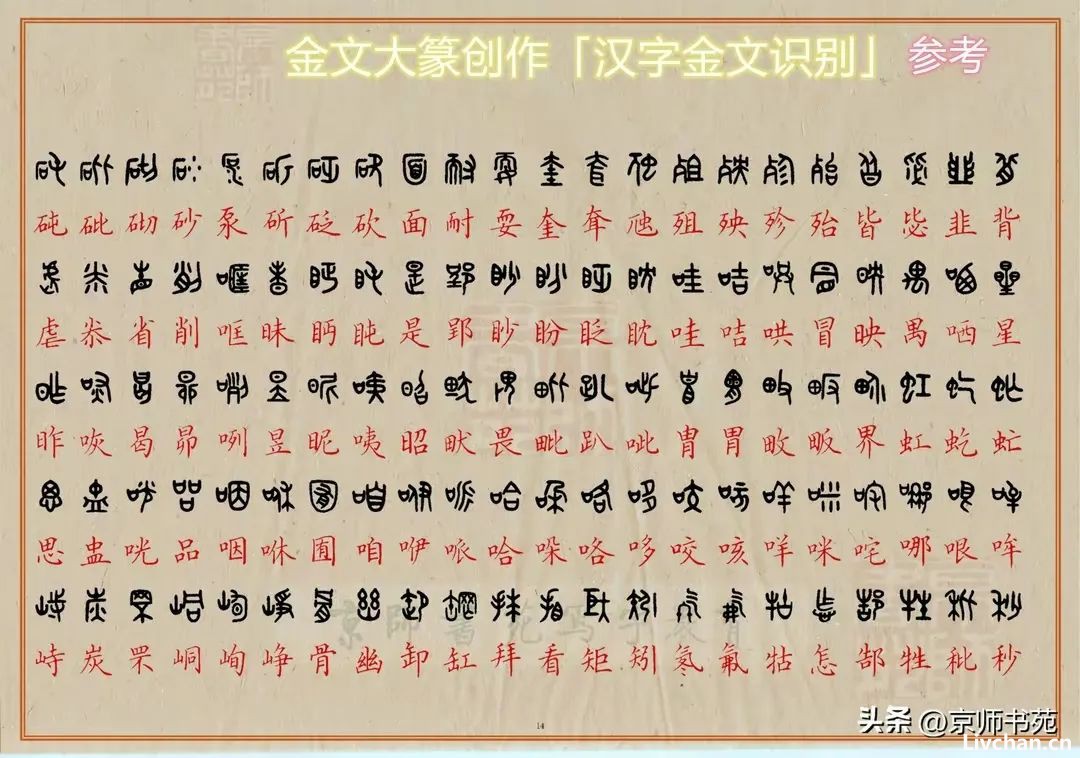 金文大篆创作「汉字金文识别」参考
砘 砒 砌 砂 泵 斫 砭 砍 面 耐 耍 奎 耷 虺 殂 殃 殄 殆 皆 毖 韭 背
虐 尜 省 削 哐 昧 眄 盹 是 郢 眇 盼 眨 眈 哇 咭 哄 冒 映 禺 哂 星
昨 咴 曷 昴 咧 昱 昵 咦 昭 畎 畏 毗 趴 呲 胄 胃 畋 畈 界 虹 虼 虻
思 蛊 咣 品 咽 咻 囿 咱 咿 哌 哈 哚 咯 哆 咬 咳 咩 咪 咤 哪 哏 哞
峙 炭 罘 峒 峋 峥 骨 幽 卸 缸 拜 看 矩 矧 氡 氟 牯 怎 郜 牲 秕 秒
14
头条 @京师书苑
Livchan.cn